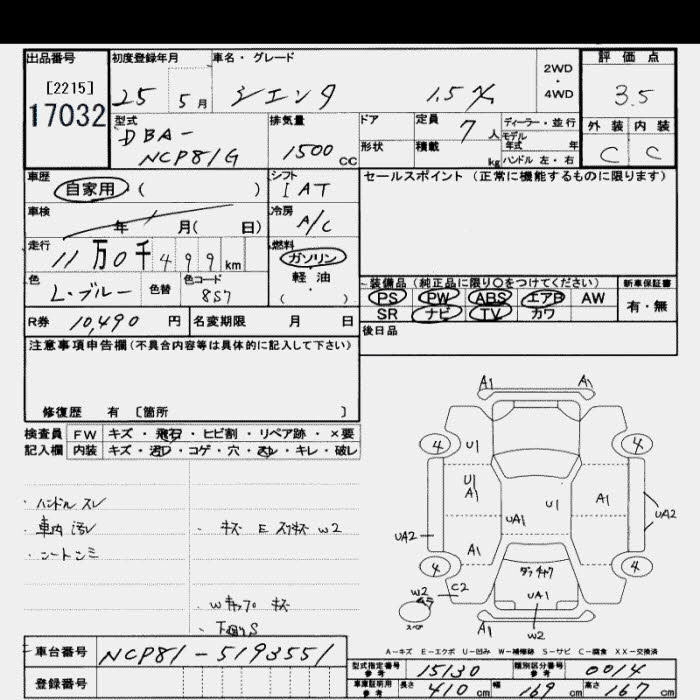 出品番号 初度登録年月 車名・グレード 評価点
[2215]
17032
25 5月 シエンタ 1.5 X 2WD・4WD 3.5
型式 排気量 ドア 定員 7人 ディーラー・並行 外装 内装
DBA-
NCP81G 1500 CC 形状 積載 kg モデル年式 年 C C
ハンドル 左・右
車歴 シフト セールスポイント(正常に機能するものに限ります)
自家用 ( ) IAT
車検 冷房
年 月( 日) A/C
走行 燃料
11万0千499km ガソリン
軽油
( )
色 色替 色コード 装備品(純正品に限り○をつけてください) 新車保証書
L・ブルー 8S7 PS PW ABS エアB AW 有・無
SR ナビ TV カワ
R券 10,490 円 名変期限 月 日 後日品
注意事項申告欄(不具合内容等は具体的に記入して下さい)
修復歴 有 〔箇所 〕
検査員 FW キズ・飛石・ヒビ割・リペア跡・×要
記入欄 内装 キズ・汚れ・コゲ・穴・スレ・キレ・破レ
・ハンドル スレ
・車内 汚レ
・シートシミ
・キズ E スリキズ W2
・Wキャプロ キズ
・下廻りS
A1 A1
4 U1 4
U1
A1 U1 A1
UA1 UA2
UA2
A1
4 4
ダッチャク
W2 C2 UA1
スペア
A1 W2
A-キズ E-エクボ U-凹み W-補修跡 S-サビ C-腐食 XX-交換済
車台番号 NCP81-5193551
登録番号
型式指定番号 参考 15130 類別区分番号 参考 0014
車庫証明用 参考 長さ 410 cm 幅 169 cm 高さ 167 cm